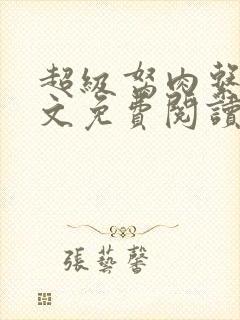 超級駑肉
文免費閱讀
張藝馨